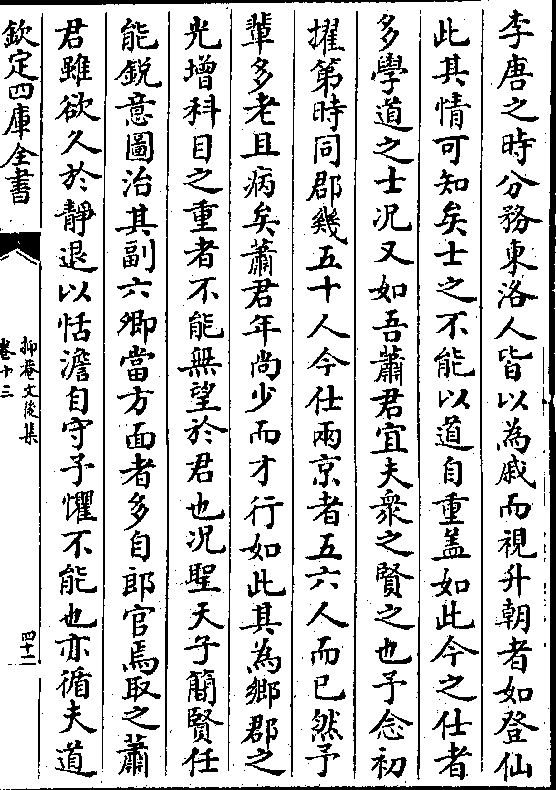 李唐之時分務東洛人皆以為戚而視升朝者如登仙
此其情可知矣士之不能以道自重蓋如此今之仕者
多學道之士況又如吾蕭君宜夫衆之賢之也予念初
擢第時同郡幾五十人今仕兩京者五六人而已然予
輩多老且病矣蕭君年尚少而才行如此其為鄉郡之
光增科目之重者不能無望於君也况聖天子簡賢任
能鋭意圖治其副六卿當方面者多自郎官焉取之蕭
君雖欲久於靜退以恬澹自守予懼不能也亦循夫道
欽定四庫全書
抑菴文後集
卷十三
四十二